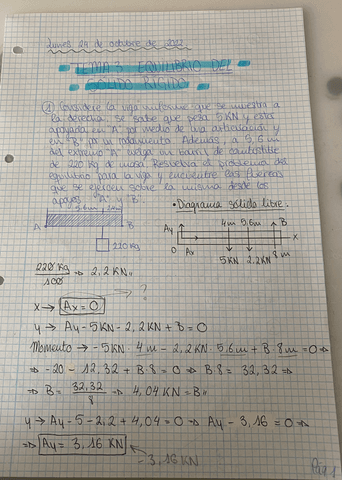 Lunes 24 de octubre de 2022
TEMA 3. EQUILIBRIO DEL
SÓLIDO RÍGIDO
① Considere la viga uniforme que se muestra a
la derecha. Se sabe que pesa 5KN y está
apoyada en "A" por medio de una articulación y
en "B" por un rodamiento. Además, a 5,6 m
del extremo "A" cuelga un barril de combustible
de 220 kg de masa. Resuelva el problema del
equilibrio para la viga y encuentre las fuerzas
que se ejercen sobre la misma desde los
apoyos "A" y "B".
5,6m
A B
220 kg
• Diagrama sólido libre.
Ay 4m 5,6m B
X
O Ax 5KN 2,2KN 8m
220 kg / 100 ⇒ 2,2 KN
X → Ax = 0 ?
y → Ay - 5KN - 2,2KN + B = 0
Momento → -5KN · 4m - 2,2KN · 5,6m + B · 8m = 0 ⇒
⇒ -20 - 12,32 + B 8 = 0 ⇒ B 8 = 32,32 ⇒
⇒ B = 32,32 / 8 ⇒ 4,04 KN = B
y → Ay - 5 - 2,2 + 4,04 = 0 ⇒ Ay - 3,16 = 0 ⇒
⇒ Ay = 3,16 KN
- 3,16 KN